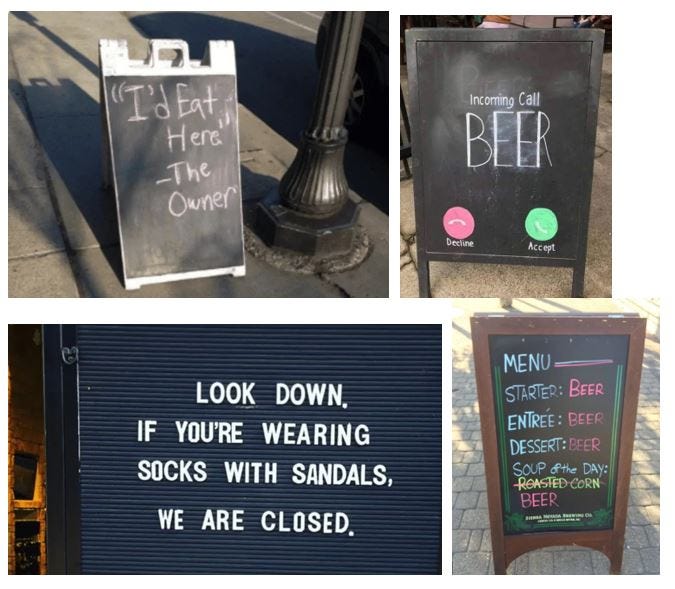 "I'd Eat
Here"
-The
Owner
Incoming Call
BEER
Decline
Accept
LOOK DOWN.
IF YOU'RE WEARING
SOCKS WITH SANDALS,
WE ARE CLOSED.
MENU
STARTER: BEER
ENTRÉE: BEER
DESSERT: BEER
SOUP of the DAY:
ROASTED CORN
BEER
SIERRA NEVADA BREWING CO.